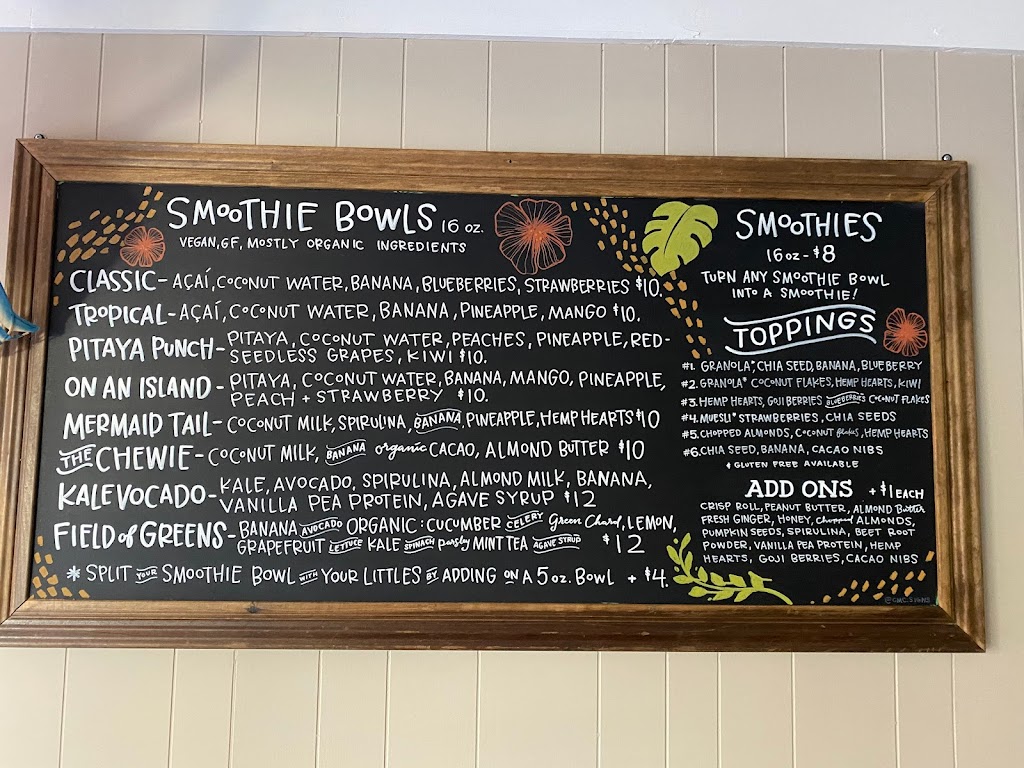 SMOOTHIE BOWLS 16 OZ.
VEGAN, GF, MOSTLY ORGANIC INGREDIENTS
CLASSIC - AÇAÍ, COCONUT WATER, BANANA, BLUEBERRIES, STRAWBERRIES $10.
TROPICAL - AÇAÍ, COCONUT WATER, BANANA, PINEAPPLE, MANGO $10.
PITAYA PUNCH - PITAYA, COCONUT WATER, PEACHES, PINEAPPLE, RED-
SEEDLESS GRAPES, KIWI $10.
ON AN ISLAND - PITAYA, COCONUT WATER, BANANA, MANGO, PINEAPPLE,
PEACH + STRAWBERRY $10.
MERMAID TAIL - COCONUT MILK, SPIRULINA, BANANA, PINEAPPLE, HEMP HEARTS $10
THE CHEWIE - COCONUT MILK, BANANA organic CACAO, ALMOND BUTTER $10
KALEVOCADO - KALE, AVOCADO, SPIRULINA, ALMOND MILK, BANANA,
VANILLA PEA PROTEIN, AGAVE SYRUP $12
FIELD of GREENS - BANANA AVOCADO ORGANIC: CUCUMBER CELERY Green Chard, LEMON,
GRAPEFRUIT LETTUCE KALE SPINACH parsley MINT TEA AGAVE SYRUP $12
* SPLIT YOUR SMOOTHIE BOWL WITH YOUR LITTLES BY ADDING ON A 5 oz. BOWL + $4.
SMOOTHIES
16 oz - $8
TURN ANY SMOOTHIE BOWL
INTO A SMOOTHIE!
TOPPINGS
#1. GRANOLA*, CHIA SEED, BANANA, BLUEBERRY
#2. GRANOLA* COCONUT FLAKES, HEMP HEARTS, KIWI
#3. HEMP HEARTS, GOJI BERRIES BLUEBERRIES COCONUT FLAKES
#4. MUESLI* STRAWBERRIES, CHIA SEEDS
#5. CHOPPED ALMONDS, COCONUT flakes, HEMP HEARTS
#6. CHIA SEED, BANANA, CACAO NIBS
* GLUTEN FREE AVAILABLE
ADD ONS + $1 EACH
CRISP ROLL, PEANUT BUTTER, ALMOND Butter
FRESH GINGER, HONEY, chopped ALMONDS,
PUMPKIN SEEDS, SPIRULINA, BEET ROOT
POWDER, VANILLA PEA PROTEIN, HEMP
HEARTS, GOJI BERRIES, CACAO NIBS
@CMC.SIGNS